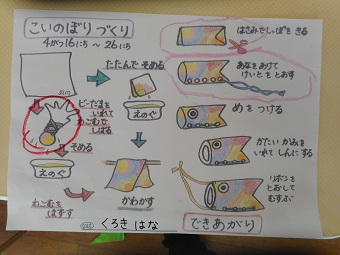 こいのぼりづくり
4がつ16にち 〜 26にち
たたんで そめる
ビーだまを
いれて
わごむで
しばる
そめる
えのぐ
えのぐ
わごむを
はずす
かわかす
くろき はな
はさみで しっぽを きる
あなをあけて
けいとを とおす
めを つける
かたい かみを
いれて しんに する
リボンを
とおして
むすぶ
できあがり